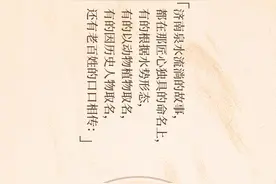 「济南泉水流淌的故事，
都在那匠心独具的命名上，
有的根据水势形态，
有的以动物植物取名，
有的因历史人物取名，
还有老百姓的口口相传：」